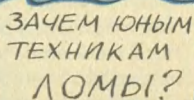 ЗАЧЕМ ЮНЫМ
ТЕХНИКАМ
ЛОМЫ?